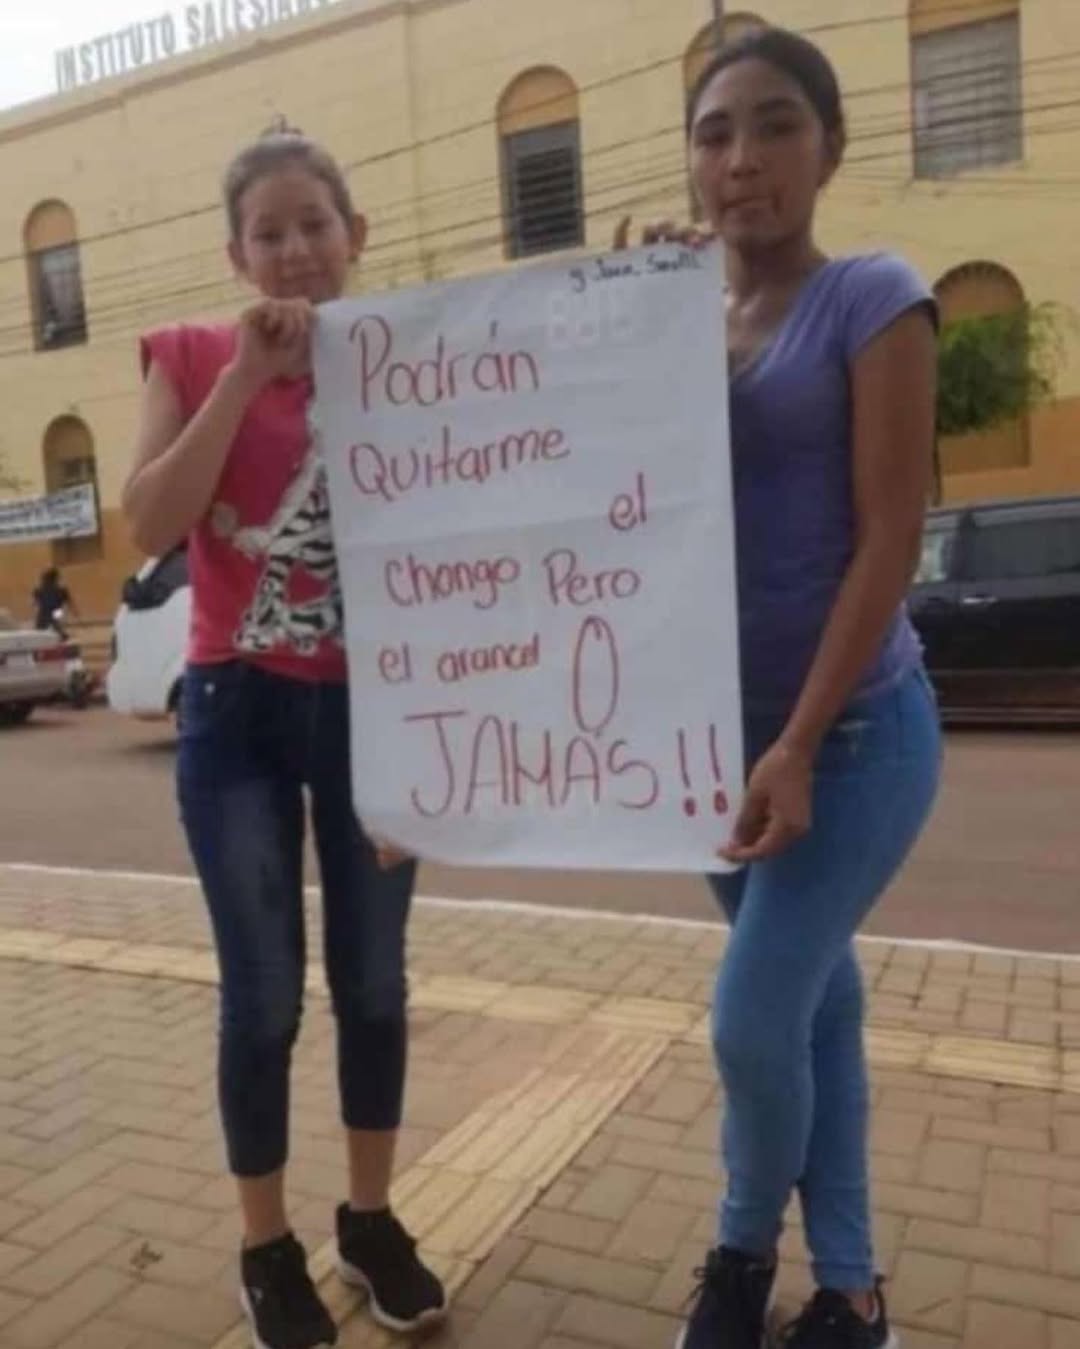 INSTITUTO SALESIANO
Podrán
Quitarme
el
Chongo Pero
el arancel 0
JAMÁS!!